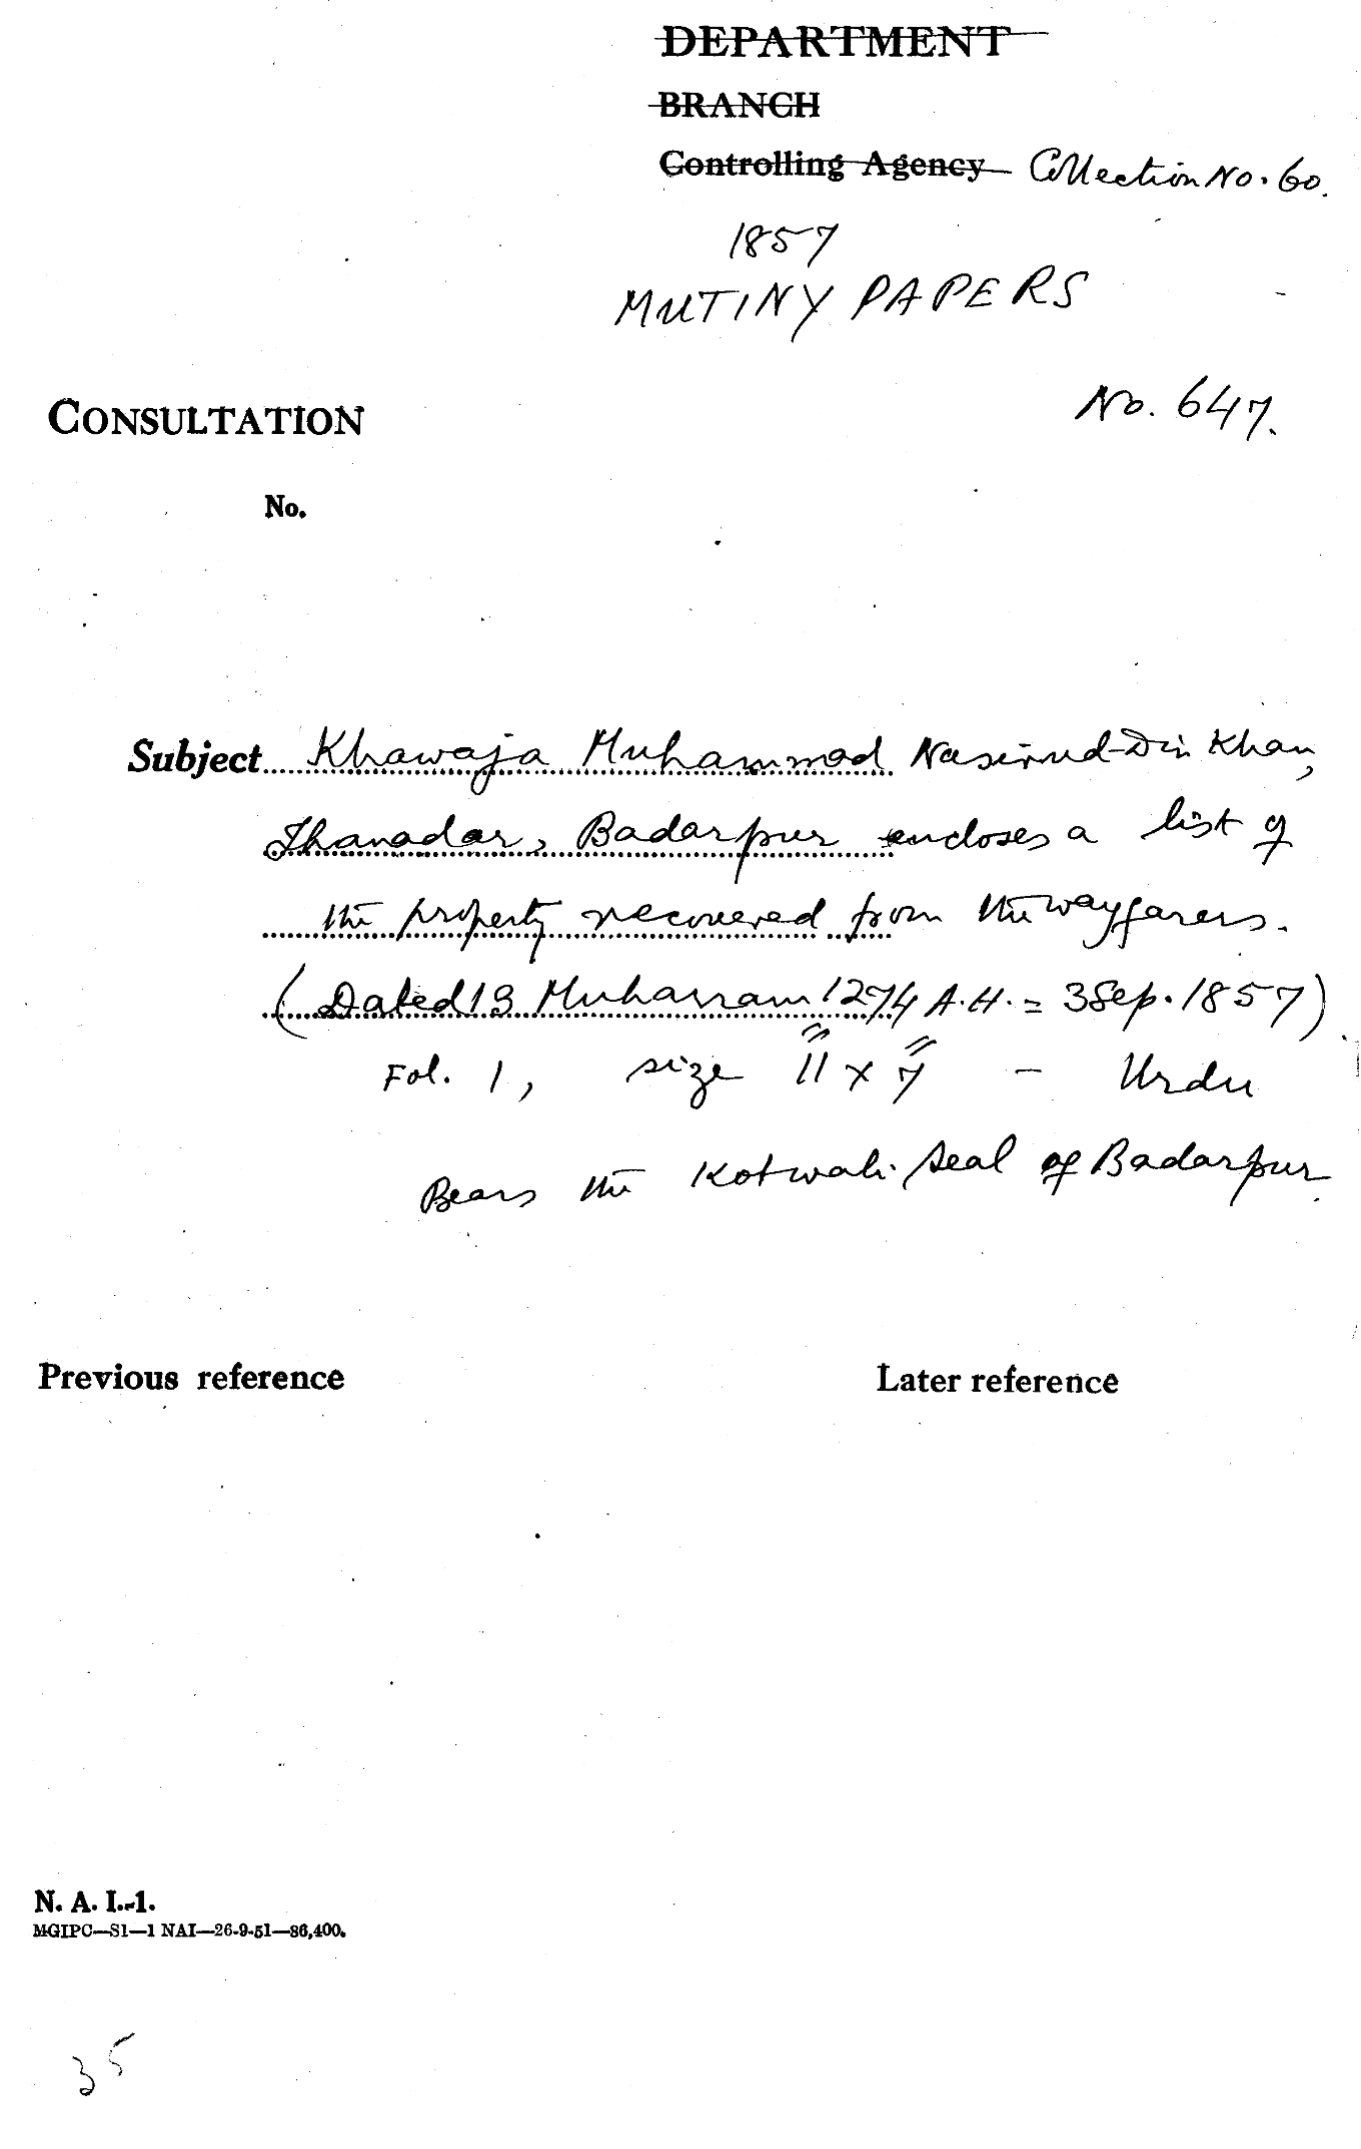 DEPARTMENT
BRANCH
Controlling Agency Collection No. 60.
1857
MUTINY PAPERS
CONSULTATION
No. 647.
No.
Subject Khawaja Muhammad Nasirud-Din Khan,
Thanadar, Badarpur encloses a list of
the property recovered from the wayfarers.
(Dated 13 Muharram 1274 A.H. = 3 Sep. 1857)
Fol. 1, size 11" x 7" - Urdu
Bears the Kotwali seal of Badarpur.
Previous reference Later reference
N. A. I.-1.
MGIPC—S1—1 NAI—26-9-51—86,400.
35